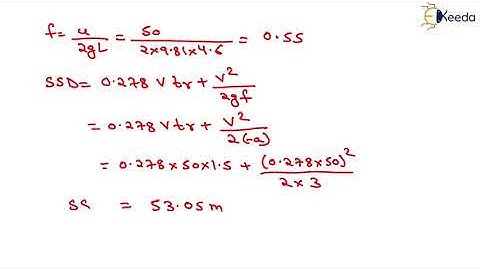 Ekeeda
f = u/2gL = 50/2×9.81×4.6 = 0.55
SSD = 0.278 V tr + V²/2gf
= 0.278 V tr + V²/2(-a)
= 0.278×50×1.5 + (0.278×50)²/2×3
SS = 53.05m